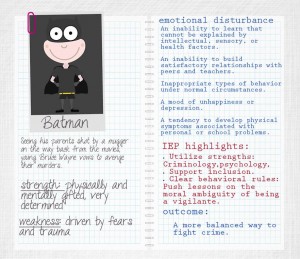 Batman
Seeing his parents shot by a mugger
on the way back from the movies,
young Bruce Wayne vows to avenge
their murders.
strength: physically and
mentally gifted, very
determined
weakness: driven by fears
and trauma
emotional disturbance
An inability to learn that
cannot be explained by
intellectual, sensory, or
health factors.
An inability to build
satisfactory relationships with
peers and teachers.
Inappropriate types of behavior
under normal circumstances.
A mood of unhappiness or
depression.
A tendency to develop physical
symptoms associated with
personal or school problems.
IEP highlights:
. Utilize strengths:
Criminology,psychology.
. Support inclusion.
. Clear behavioral rules:
Push lessons on the
moral ambiguity of being
a vigilante.
outcome:
A more balanced way to
fight crime.